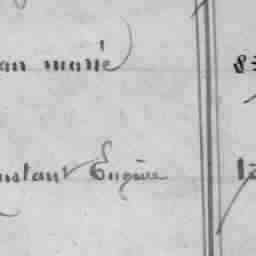 an marié
nstant Eugène